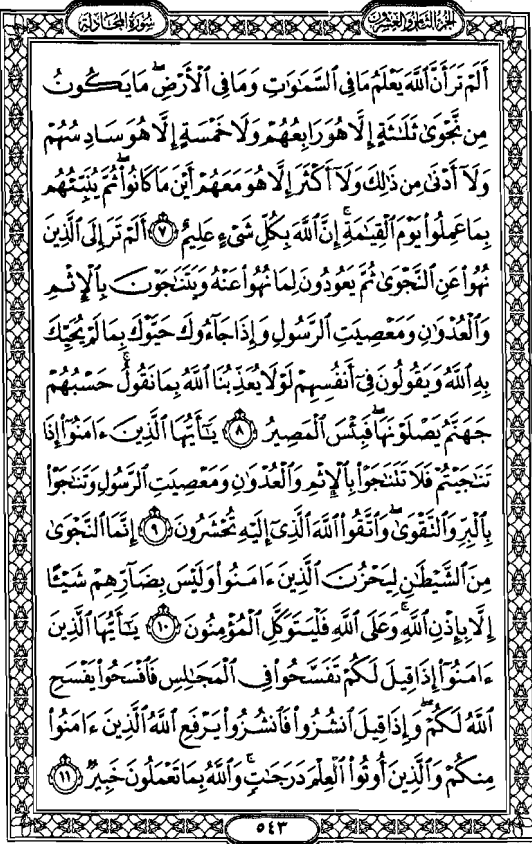 سورة المجادلة
الجزء الثامن والعشرون
أَلَمْ تَرَ أَنَّ ٱللَّهَ يَعْلَمُ مَا فِى ٱلسَّمَـٰوَٰتِ وَمَا فِى ٱلْأَرْضِ ۖ مَا يَكُونُ
مِن نَّجْوَىٰ ثَلَـٰثَةٍ إِلَّا هُوَ رَابِعُهُمْ وَلَا خَمْسَةٍ إِلَّا هُوَ سَادِسُهُمْ
وَلَآ أَدْنَىٰ مِن ذَٰلِكَ وَلَآ أَكْثَرَ إِلَّا هُوَ مَعَهُمْ أَيْنَ مَا كَانُوا۟ ۖ ثُمَّ يُنَبِّئُهُم
بِمَا عَمِلُوا۟ يَوْمَ ٱلْقِيَـٰمَةِ ۚ إِنَّ ٱللَّهَ بِكُلِّ شَىْءٍ عَلِيمٌ ٧ أَلَمْ تَرَ إِلَى ٱلَّذِينَ
نُهُوا۟ عَنِ ٱلنَّجْوَىٰ ثُمَّ يَعُودُونَ لِمَا نُهُوا۟ عَنْهُ وَيَتَنَـٰجَوْنَ بِٱلْإِثْمِ
وَٱلْعُدْوَٰنِ وَمَعْصِيَتِ ٱلرَّسُولِ وَإِذَا جَآءُوكَ حَيَّوْكَ بِمَا لَمْ يُحَيِّكَ
بِهِ ٱللَّهُ وَيَقُولُونَ فِىٓ أَنفُسِهِمْ لَوْلَا يُعَذِّبُنَا ٱللَّهُ بِمَا نَقُولُ ۚ حَسْبُهُمْ
جَهَنَّمُ يَصْلَوْنَهَا ۖ فَبِئْسَ ٱلْمَصِيرُ ٨ يَـٰٓأَيُّهَا ٱلَّذِينَ ءَامَنُوٓا۟ إِذَا
تَنَـٰجَيْتُمْ فَلَا تَتَنَـٰجَوْا۟ بِٱلْإِثْمِ وَٱلْعُدْوَٰنِ وَمَعْصِيَتِ ٱلرَّسُولِ وَتَنَـٰجَوْا۟
بِٱلْبِرِّ وَٱلتَّقْوَىٰ ۖ وَٱتَّقُوا۟ ٱللَّهَ ٱلَّذِىٓ إِلَيْهِ تُحْشَرُونَ ٩ إِنَّمَا ٱلنَّجْوَىٰ
مِنَ ٱلشَّيْطَـٰنِ لِيَحْزُنَ ٱلَّذِينَ ءَامَنُوا۟ وَلَيْسَ بِضَآرِّهِمْ شَيْـًٔا
إِلَّا بِإِذْنِ ٱللَّهِ ۚ وَعَلَى ٱللَّهِ فَلْيَتَوَكَّلِ ٱلْمُؤْمِنُونَ ١٠ يَـٰٓأَيُّهَا ٱلَّذِينَ
ءَامَنُوٓا۟ إِذَا قِيلَ لَكُمْ تَفَسَّحُوا۟ فِى ٱلْمَجَـٰلِسِ فَٱفْسَحُوا۟ يَفْسَحِ
ٱللَّهُ لَكُمْ ۖ وَإِذَا قِيلَ ٱنشُزُوا۟ فَٱنشُزُوا۟ يَرْفَعِ ٱللَّهُ ٱلَّذِينَ ءَامَنُوا۟
مِنكُمْ وَٱلَّذِينَ أُوتُوا۟ ٱلْعِلْمَ دَرَجَـٰتٍ ۚ وَٱللَّهُ بِمَا تَعْمَلُونَ خَبِيرٌ ١١
٥٤٣